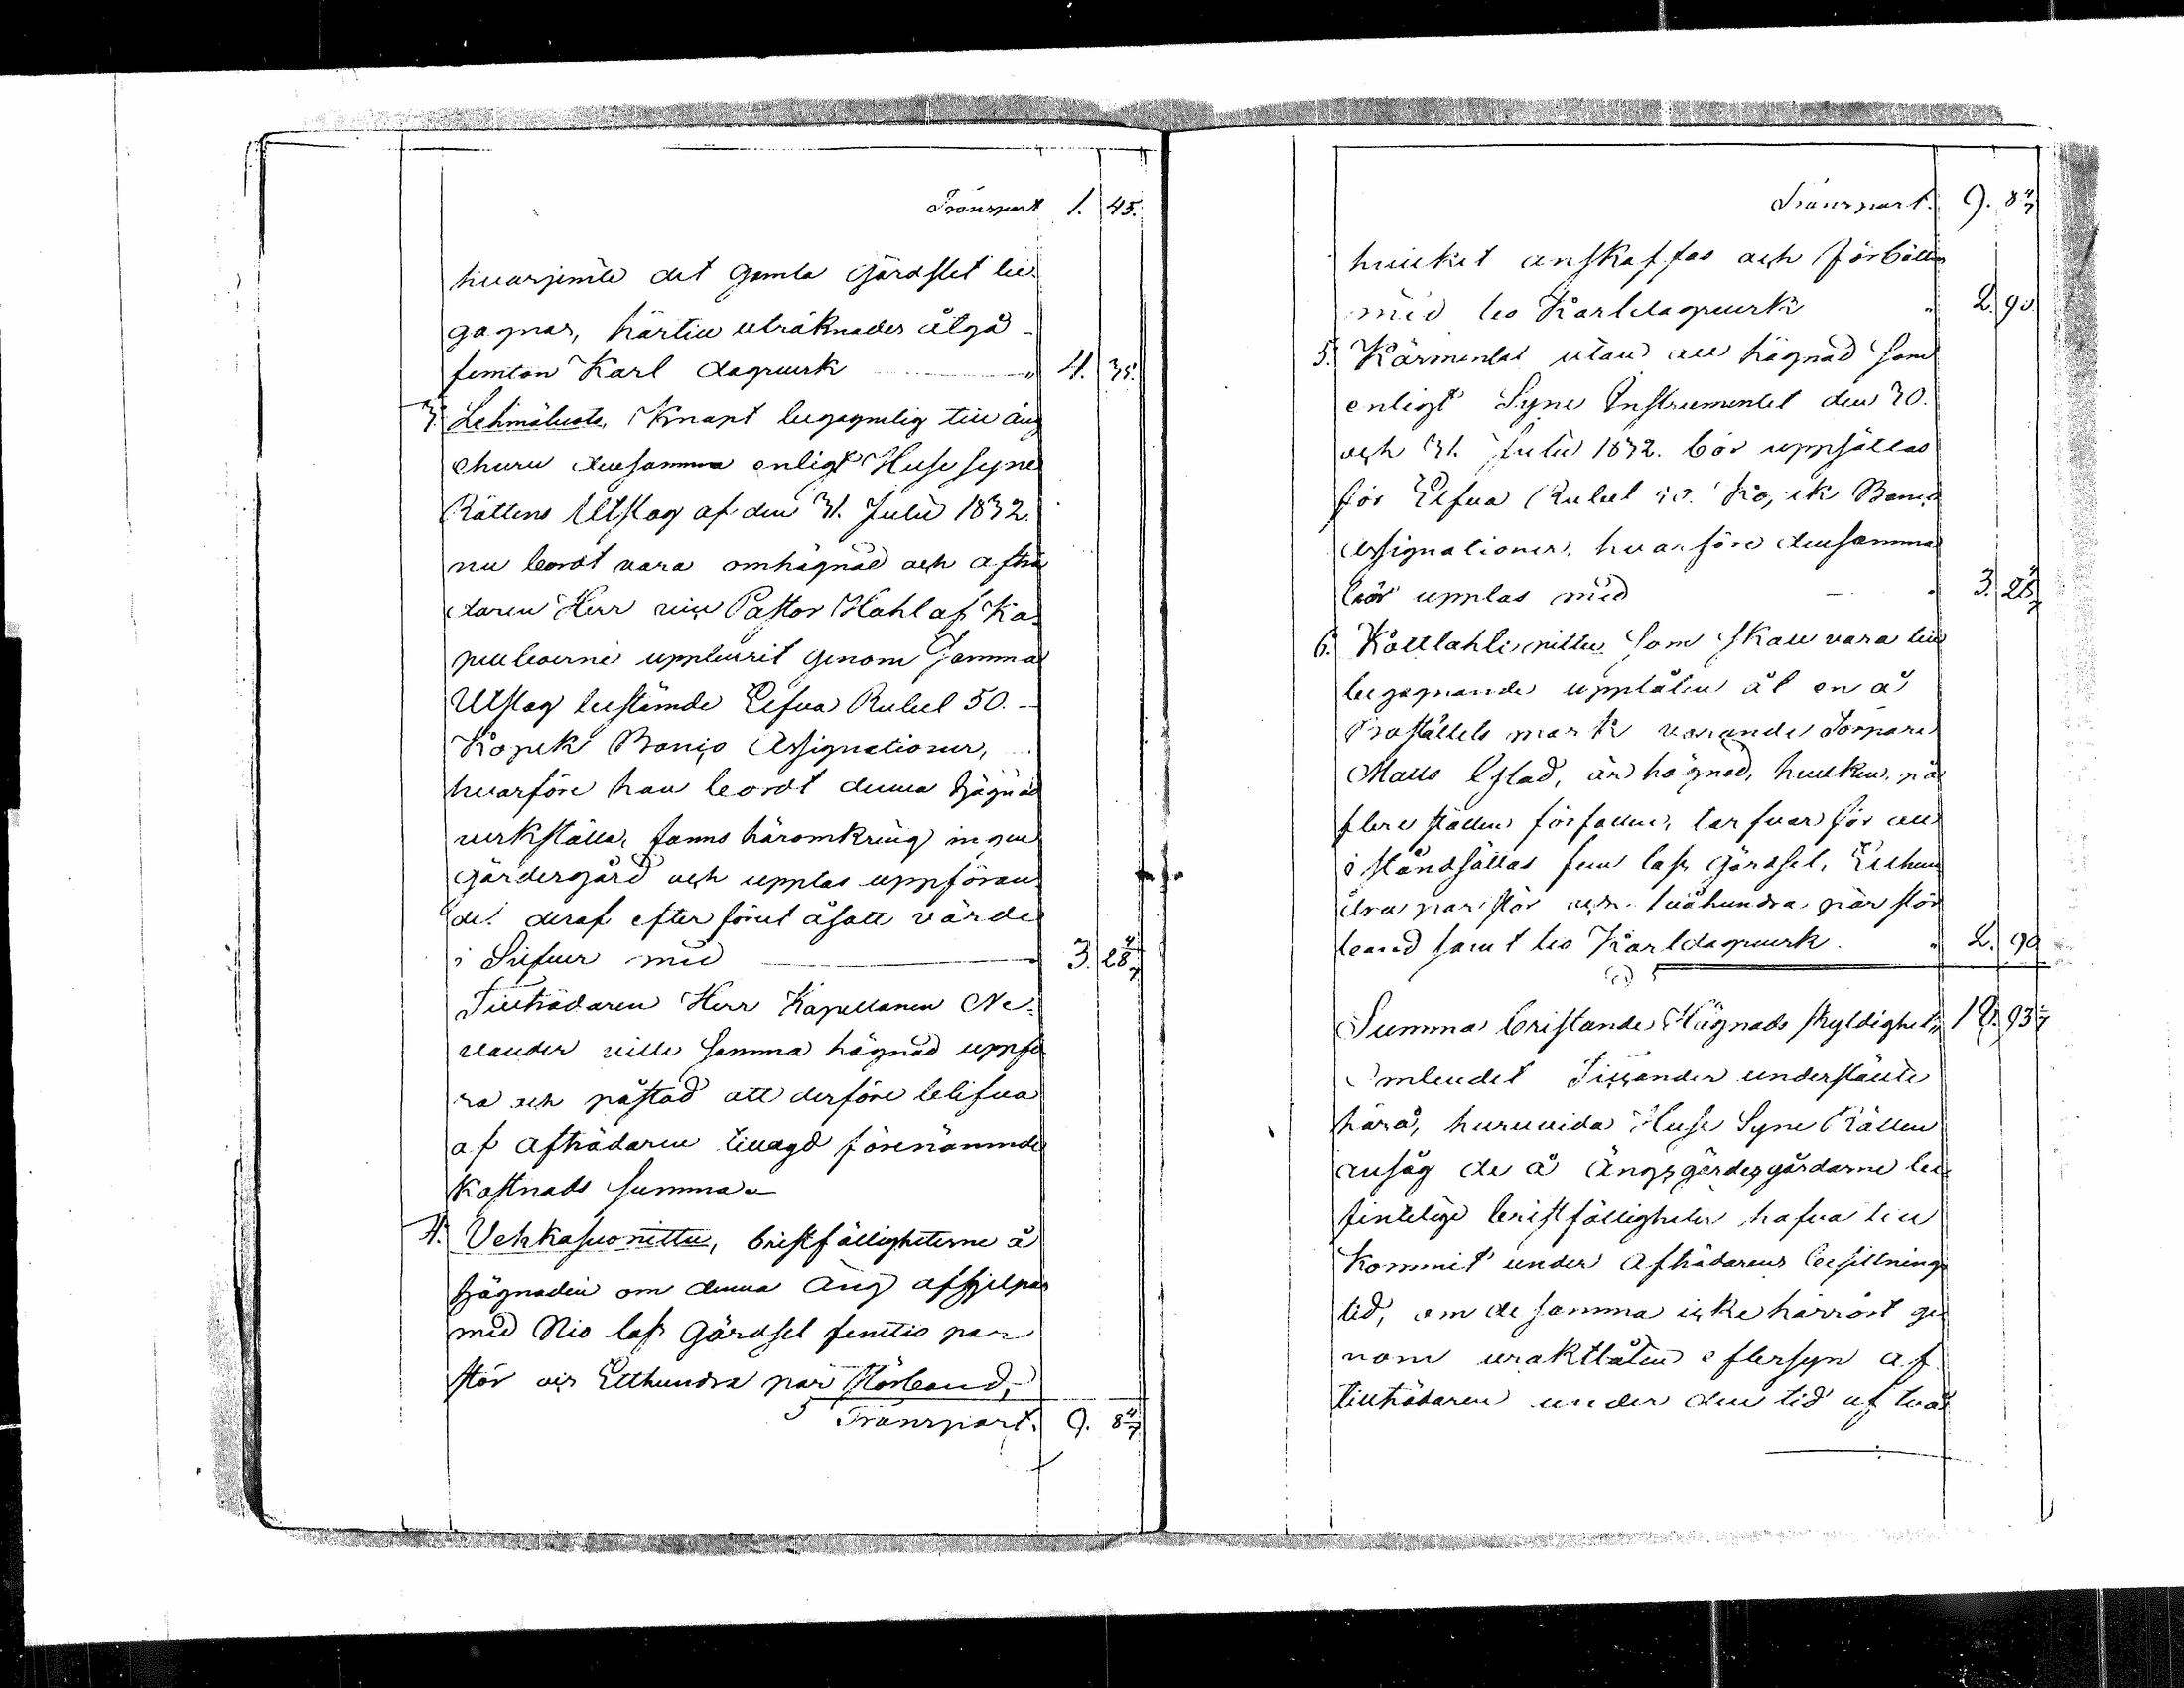 Transport 1. 45.
hvarjemte det gamla Gärdslet be-
gagnas, härtill uträknades åtgå
femton Karl dagsverk " 4. 35.
3. Lehmäluoto, Knapt begagnelig till äng
ehuru densamma enligt Huse syne
Rättens Utslag af den 31. Julii 1832.
nu bordt vara omhägnad och afträ
daren Herr vice Pastor Hahl af Ka-
pellboerne uppburit genom samma
Utslag bestämde Elfva Rubel 50.
Kopek Banco Assignationer,
hvarföre han bordt denna hägnad
verkställa, fanns häromkring ingen
Gärdesgård och upptas uppföran
det deraf efter förut åsatt värde
i Silfver med 3. 28 4/7
Tillträdaren Herr Kapellanen Ne-
vander ville samma hägnad uppfö
ra och påstod att derföre blifva
af Afträdaren tillagd förenämnde
Kostnads summa.
4. Vehkasuonittu, bristfälligheterne å
hägnaden om denna Äng afhjelpas
med Nio lass Gärdsel femtio par
stör och Etthundra par störband,
Transport. 9. 8 4/7
Transport. 9. 8 4/7
hvilket anskaffas och förbättras
med tio Karldagsverk " 2. 90.
5. Kärmenlat utan all hägnad som
enligt Syne Instrumentet den 30.
och 31. Julii 1832. bör uppsättas
för Elfva Rubel 50. Kopek Banco
Assignationer, hvarföre densamma
bör upptas med " 3. 28 4/7
6. Kottlahti nittu som skall vara till
begagnande upplåten åt en å
Boställets mark varande Torpare
Matts är hägnad, hvilken, på
flere ställen förfallen, tarfvar för att
i ståndsättas fem lass Gärdsel, Etthun
dra par stör och tvåhundra par stör
band samt tio Karldagsverk. " 2. 90
Summa bristande Hägnads skyldighet " 18. 93 1/7
Ombudet Tissander underställte
härå, huruvida Huse Syne Rätten
ansåg de å Ängsgärdesgårdarne be
fintelige bristfälligheter hafva till
kommit under Afträdarens besittnings
tid, om de samma icke härrört ge
nom uraktlåten eftersyn af
tillträdaren under den tid af två